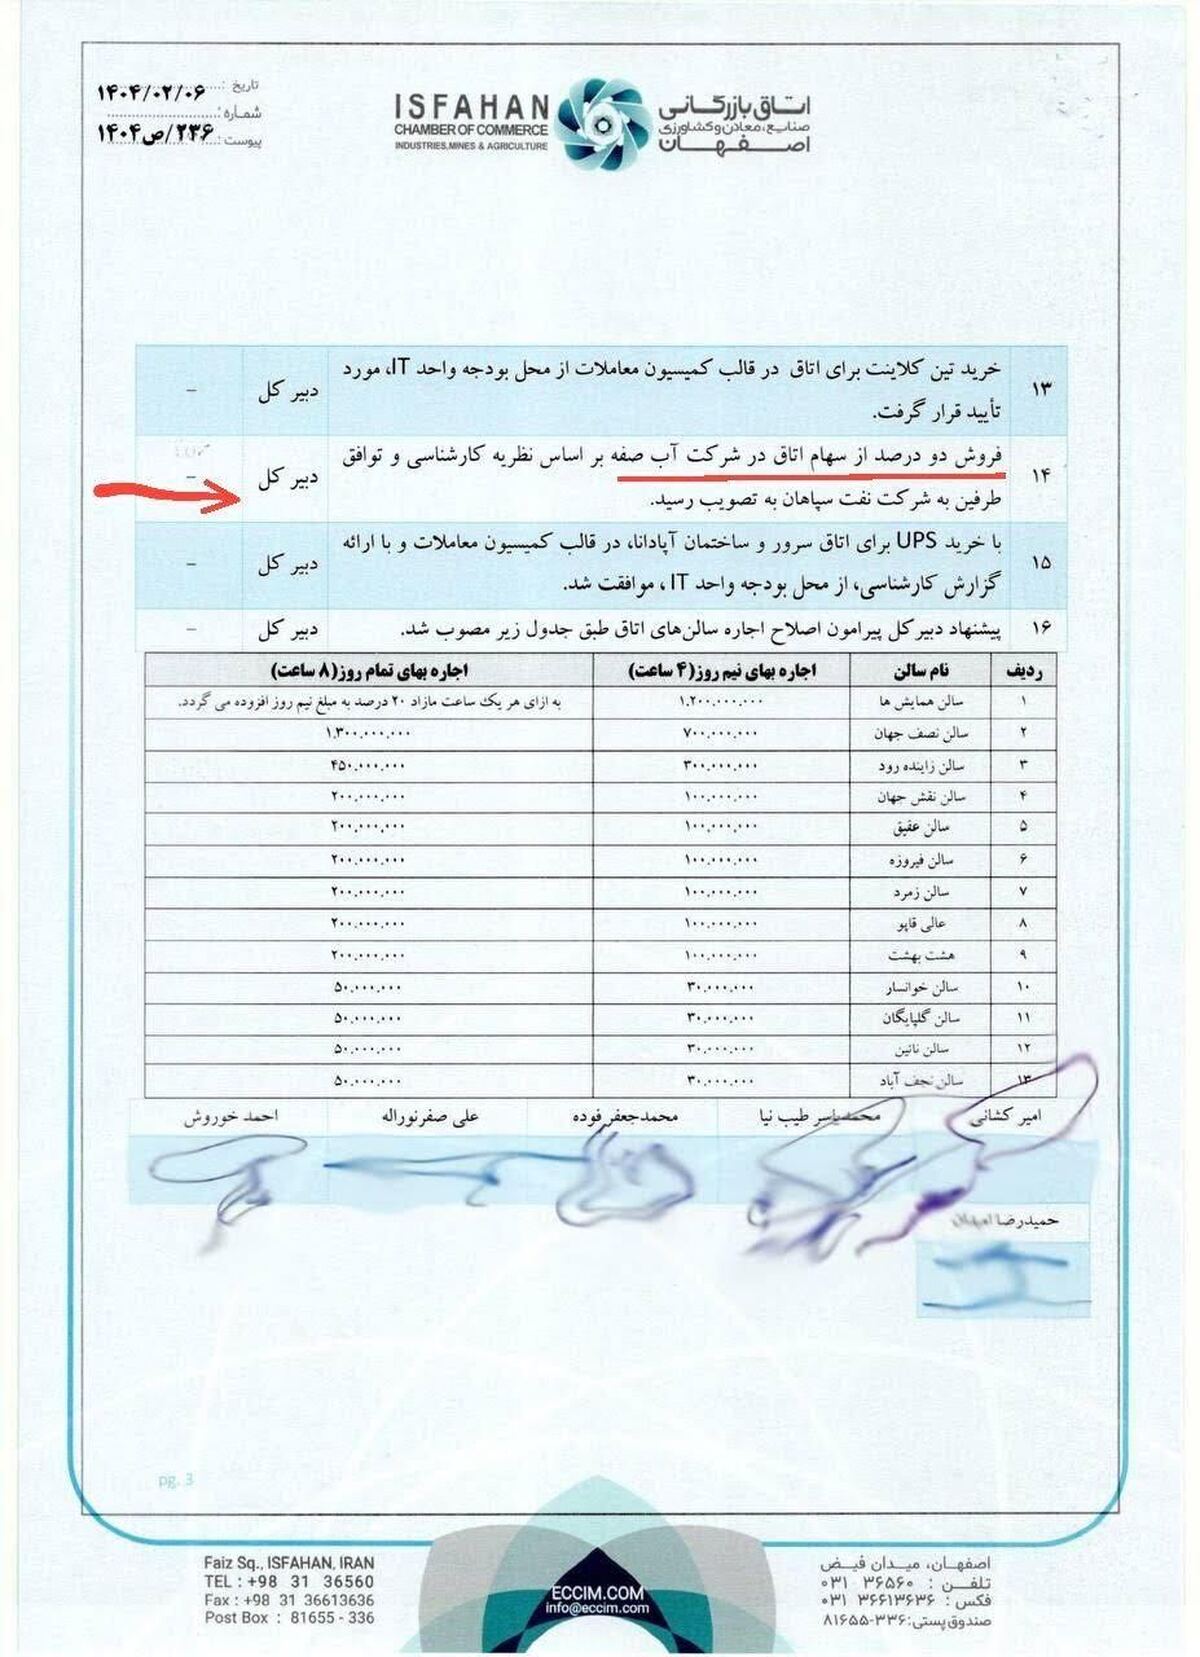 تاریخ : ۱۴۰۴/۰۲/۰۶
شماره :
پیوست : ۲۳۶/ص/۱۴۰۴
ISFAHAN
CHAMBER OF COMMERCE
INDUSTRIES, MINES & AGRICULTURE
اتاق بازرگانی
صنایع، معادن و کشاورزی
اصفهان
۱۳ خرید تین کلاینت برای اتاق در قالب کمیسیون معاملات از محل بودجه واحد IT، مورد دبیر کل -
تأیید قرار گرفت.
۱۴ فروش دو درصد از سهام اتاق در شرکت آب صفه بر اساس نظریه کارشناسی و توافق دبیر کل -
طرفین به شرکت نفت سپاهان به تصویب رسید.
۱۵ با خرید UPS برای اتاق سرور و ساختمان آپادانا، در قالب کمیسیون معاملات و با ارائه دبیر کل -
گزارش کارشناسی، از محل بودجه واحد IT ، موافقت شد.
۱۶ پیشنهاد دبیرکل پیرامون اصلاح اجاره سالن‌های اتاق طبق جدول زیر مصوب شد. دبیر کل -
ردیف نام سالن اجاره بهای نیم روز(۴ ساعت) اجاره بهای تمام روز(۸ ساعت)
۱ سالن همایش ها ۱.۲۰۰.۰۰۰.۰۰۰ به ازای هر یک ساعت مازاد ۲۰ درصد به مبلغ نیم روز افزوده می گردد.
۲ سالن نصف جهان ۷۰۰.۰۰۰.۰۰۰ ۱.۳۰۰.۰۰۰.۰۰۰
۳ سالن زاینده رود ۳۰۰.۰۰۰.۰۰۰ ۴۵۰.۰۰۰.۰۰۰
۴ سالن نقش جهان ۱۰۰.۰۰۰.۰۰۰ ۲۰۰.۰۰۰.۰۰۰
۵ سالن عقیق ۱۰۰.۰۰۰.۰۰۰ ۲۰۰.۰۰۰.۰۰۰
۶ سالن فیروزه ۱۰۰.۰۰۰.۰۰۰ ۲۰۰.۰۰۰.۰۰۰
۷ سالن زمرد ۱۰۰.۰۰۰.۰۰۰ ۲۰۰.۰۰۰.۰۰۰
۸ عالی قاپو ۱۰۰.۰۰۰.۰۰۰ ۲۰۰.۰۰۰.۰۰۰
۹ هشت بهشت ۱۰۰.۰۰۰.۰۰۰ ۲۰۰.۰۰۰.۰۰۰
۱۰ سالن خوانسار ۳۰.۰۰۰.۰۰۰ ۵۰.۰۰۰.۰۰۰
۱۱ سالن گلپایگان ۳۰.۰۰۰.۰۰۰ ۵۰.۰۰۰.۰۰۰
۱۲ سالن نائین ۳۰.۰۰۰.۰۰۰ ۵۰.۰۰۰.۰۰۰
۱۳ سالن نجف آباد ۳۰.۰۰۰.۰۰۰ ۵۰.۰۰۰.۰۰۰
امیر کشانی محمدیاسر طیب نیا محمدجعفر فوده علی صفرنوراله احمد خوروش
حمیدرضا
pg. 3
Faiz Sq., ISFAHAN, IRAN
TEL : +98 31 36560
Fax : +98 31 36613636
Post Box : 81655 - 336
ECCIM.COM
info@eccim.com
اصفهان، میدان فیض
تلفن : ۳۶۵۶۰ ۰۳۱
فکس : ۳۶۶۱۳۶۳۶ ۰۳۱
صندوق پستی: ۳۳۶-۸۱۶۵۵